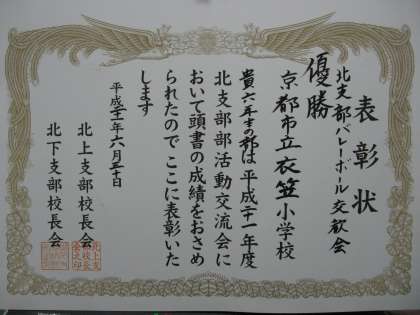 表彰状
北支部バレーボール交歓会
優勝
京都市立衣笠小学校
貴六年生の部は平成二十一年度
北支部部活動交流会に
おいて頭書の成績をおさめ
られたのでここに表彰いた
します
平成二十一年六月二十日
北上支部校長会
北下支部校長会